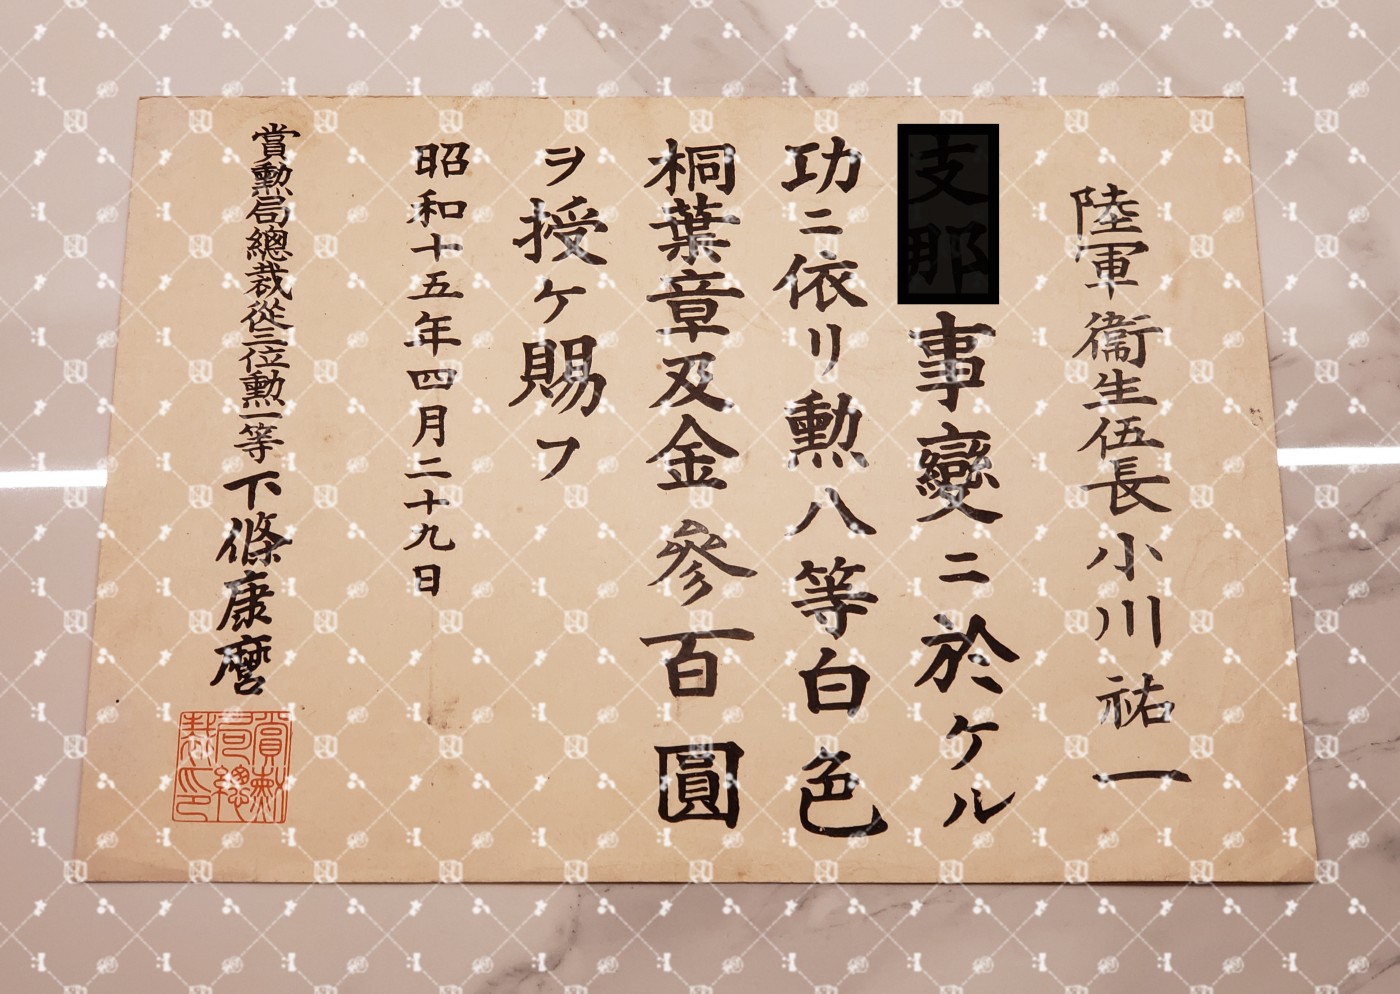 陸軍衞生伍長小川祐一
支那事變ニ於ケル
功ニ依リ勲八等白色
桐葉章及金參百圓
ヲ授ケ賜フ
昭和十五年四月二十九日
賞勲局總裁從三位勲一等下條康麿
賞勲
局總
裁印